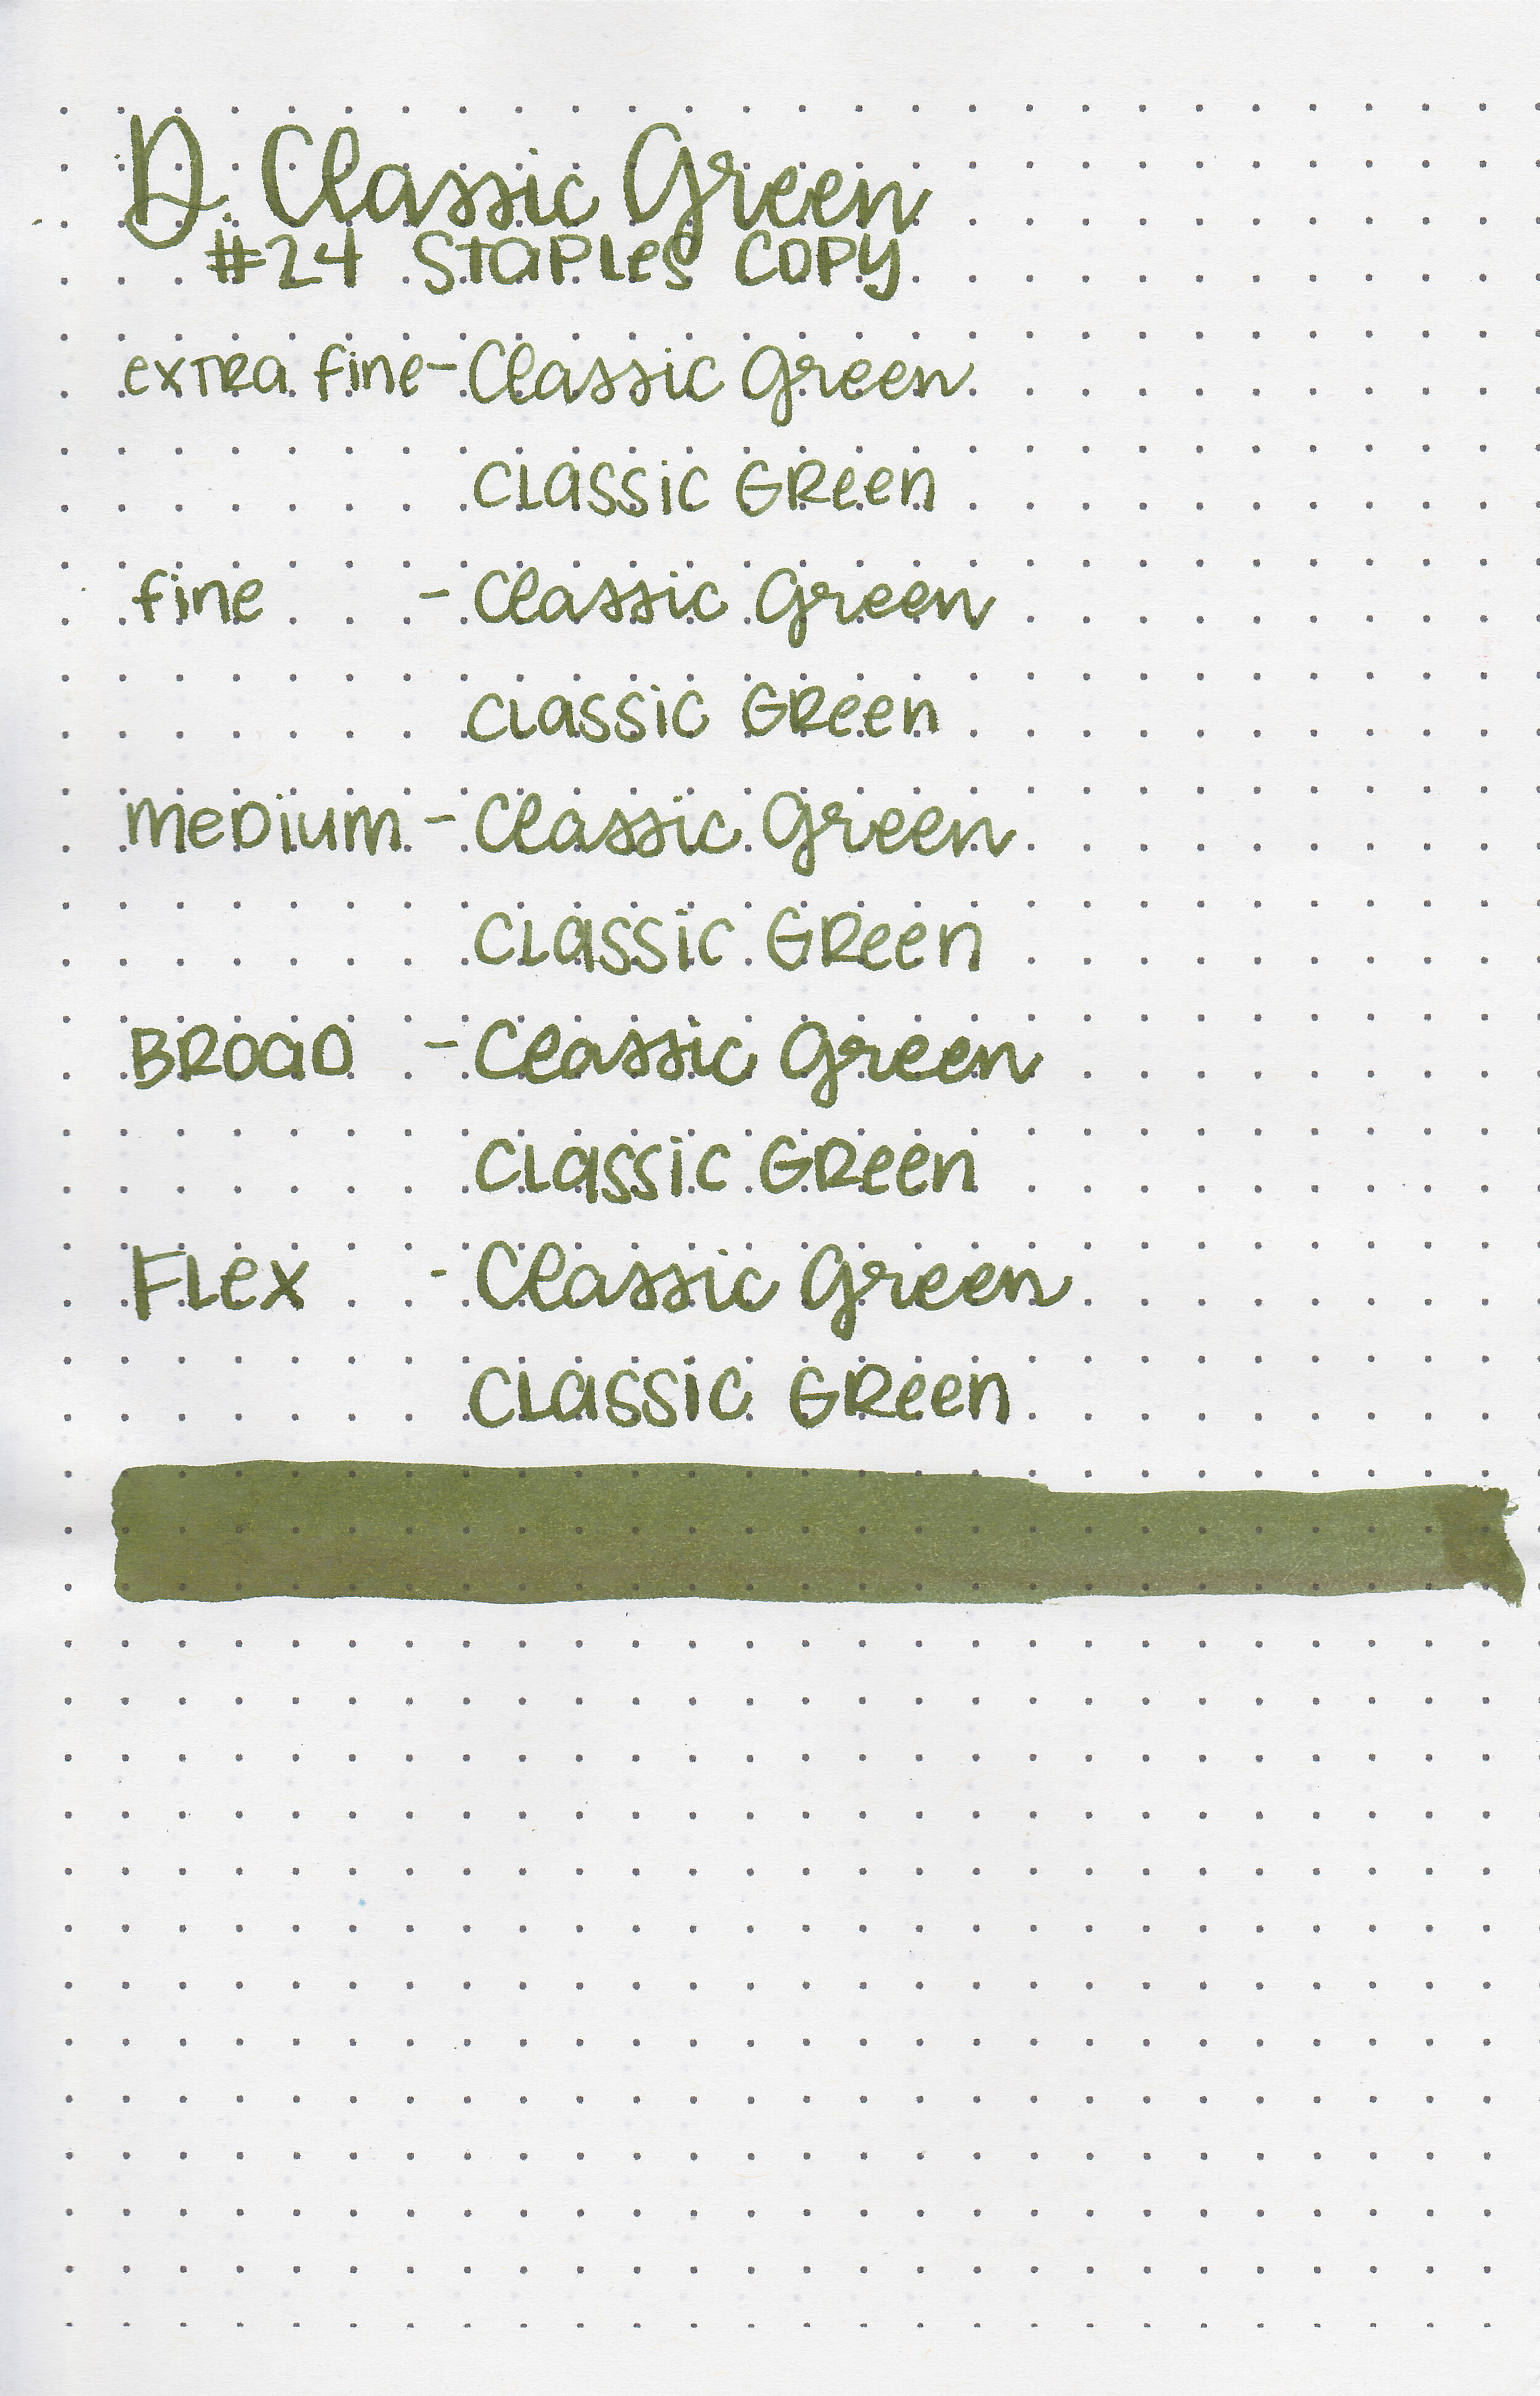 D. Classic Green
#24 Staples Copy
extra fine - Classic Green
Classic Green
fine - Classic Green
Classic Green
medium - Classic Green
Classic Green
Broad - Classic Green
Classic Green
Flex - Classic Green
Classic Green